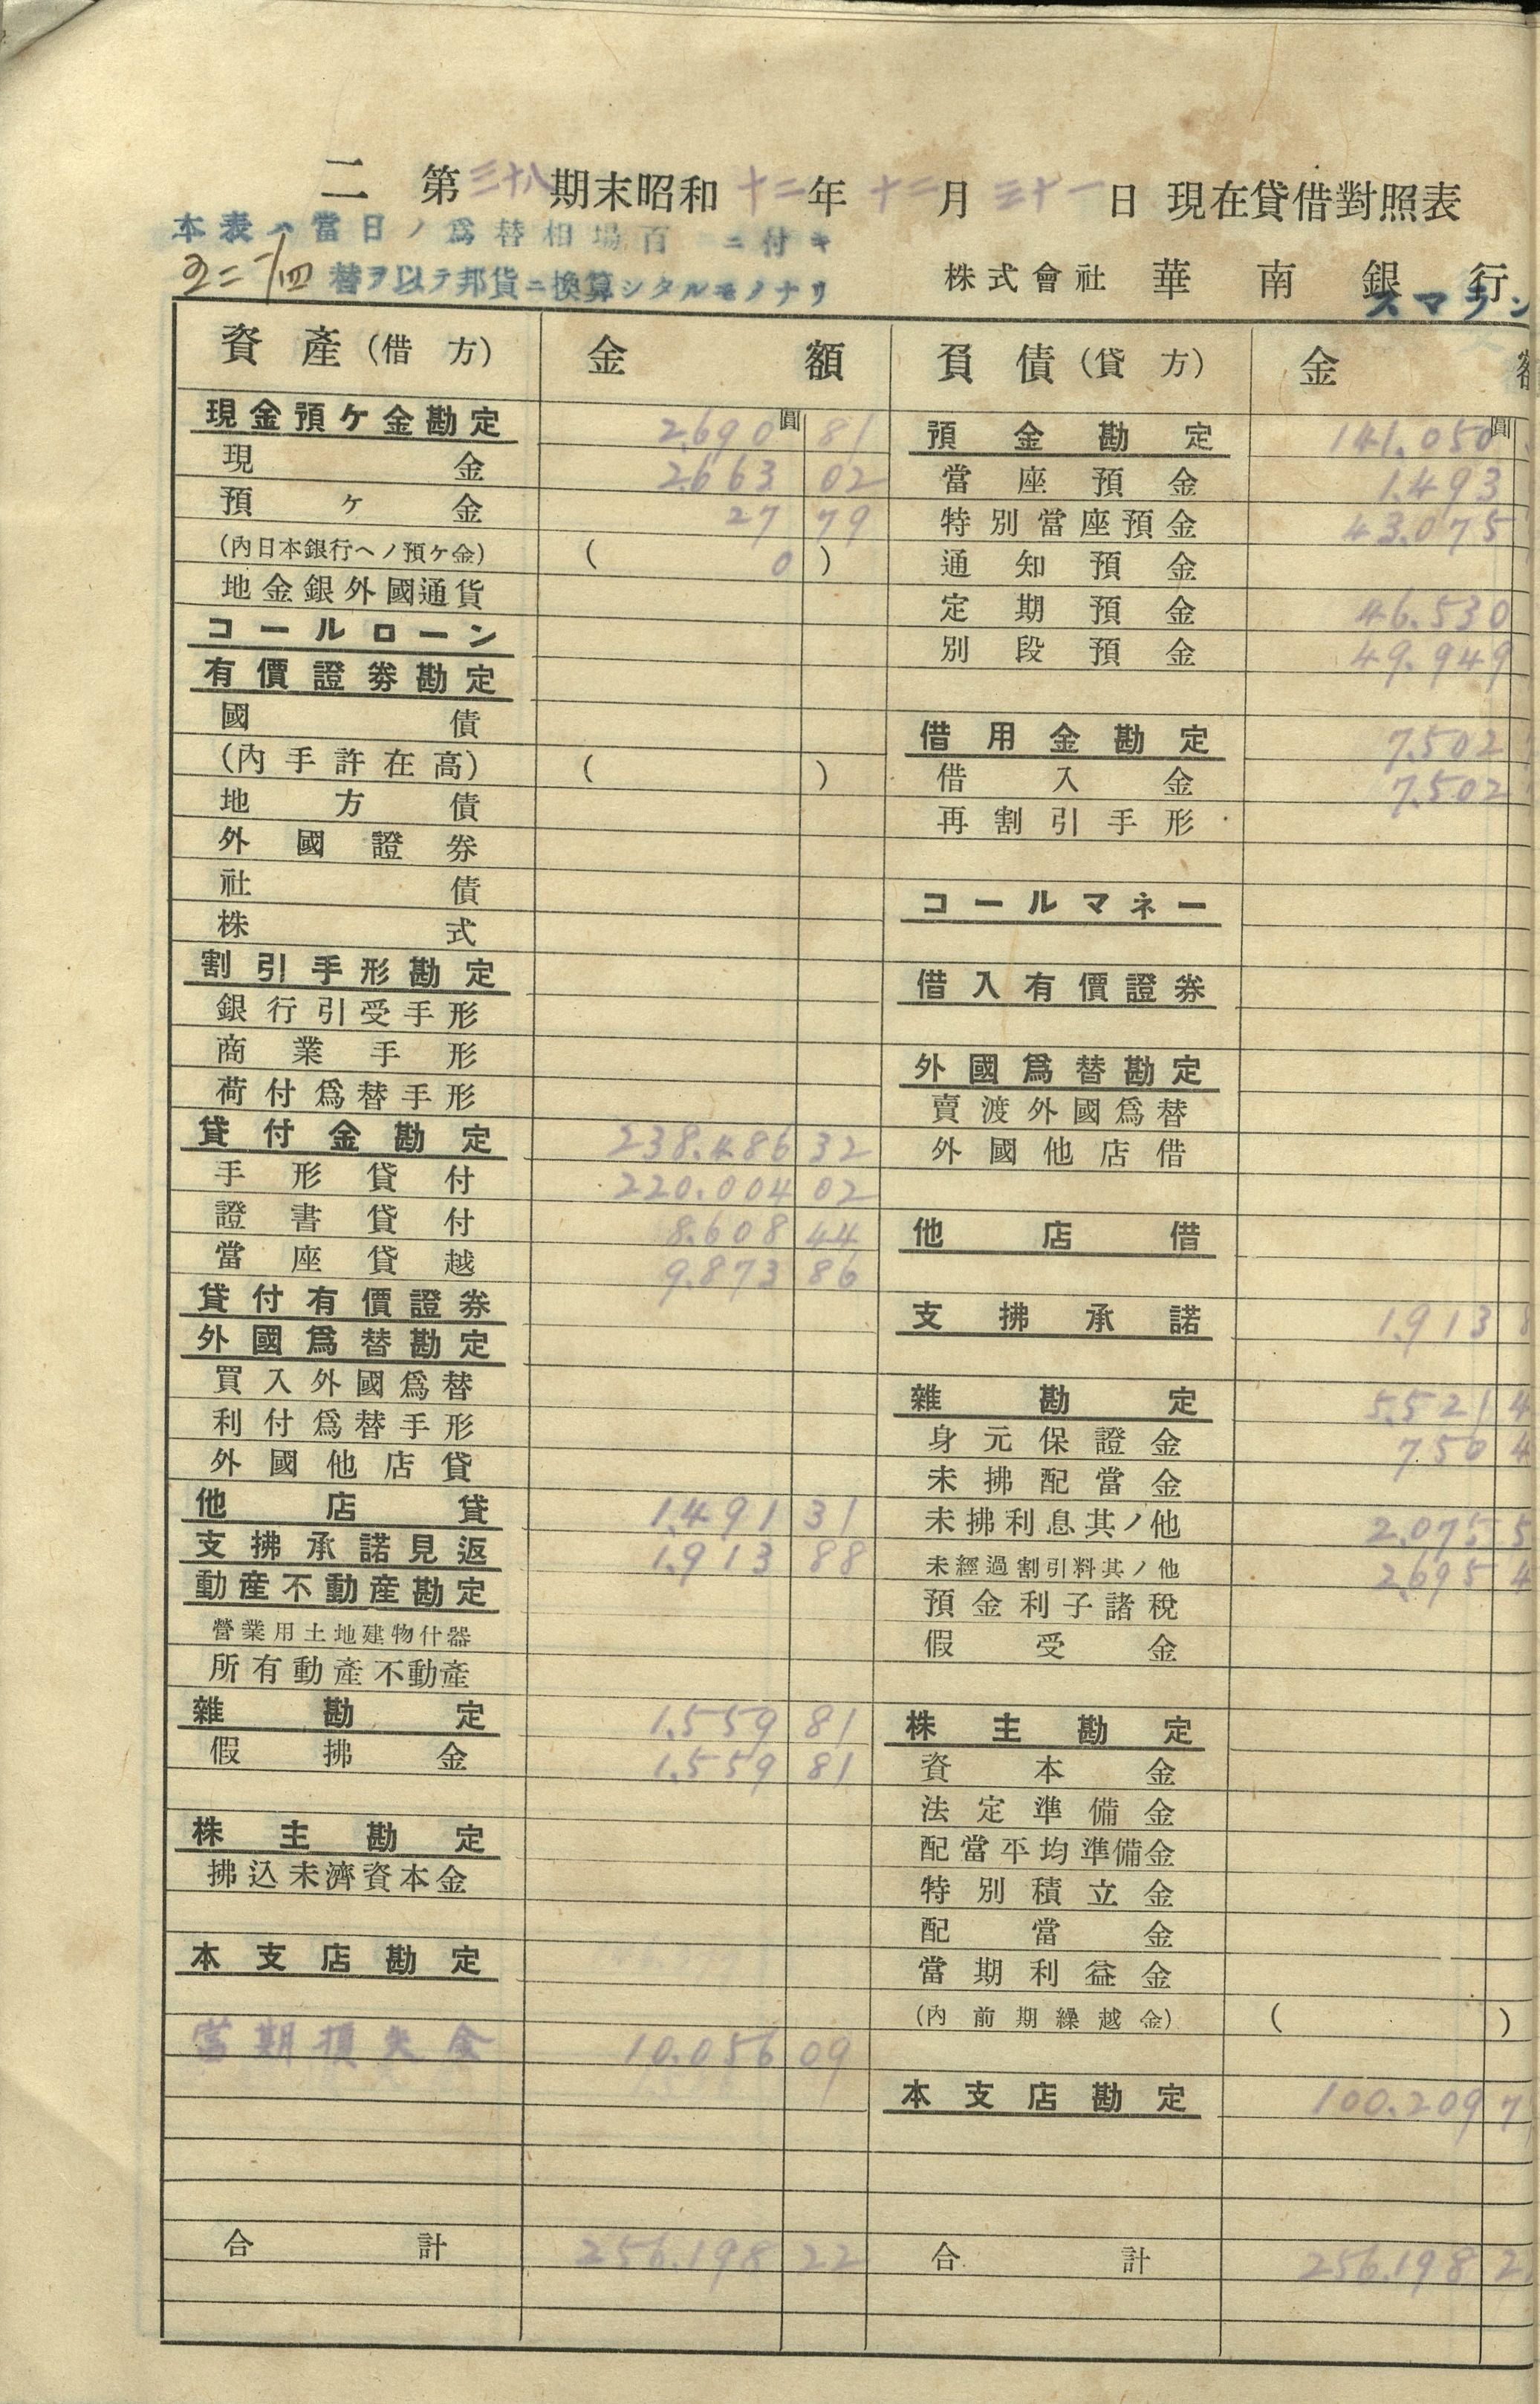 二 第三十八期末昭和十二年十二月三十一日現在貸借對照表
本表ハ當日ノ爲替相場百 ニ付キ
替ヲ以テ邦貨ニ換算シタルモノナリ
株式會社 華南銀行
スマラン
資產(借方) 金額 負債(貸方) 金額
現金預ケ金勘定 2.690圓 81
現金 2.663 02
預ケ金 27 79
(內日本銀行ヘノ預ケ金) ( 0 )
地金銀外國通貨
コールローン
有價證券勘定
國債
(內手許在高) ( )
地方債
外國證券
社債
株式
割引手形勘定
銀行引受手形
商業手形
荷付爲替手形
貸付金勘定 238.486 32
手形貸付 220.004 02
證書貸付 8.608 44
當座貸越 9.873 86
貸付有價證券
外國爲替勘定
買入外國爲替
利付爲替手形
外國他店貸
他店貸 1.491 31
支拂承諾見返 1.913 88
動産不動産勘定
營業用土地建物什器
所有動產不動產
雜勘定 1.559 81
假拂金 1.559 81
株主勘定
拂込未濟資本金
本支店勘定
當期損失金 10.056 09
合計 256.198 22
預金勘定 141.050圓
當座預金 1.493
特別當座預金 43.075
通知預金
定期預金 46.530
別段預金 49.949
借用金勘定 7.502
借入金 7.502
再割引手形
コールマネー
借入有價證券
外國爲替勘定
賣渡外國爲替
外國他店借
他店借
支拂承諾 1.913 8
雜勘定 5.521 4
身元保證金 750 4
未拂配當金
未拂利息其ノ他 2.075 5
未經過割引料其ノ他 2.695 4
預金利子諸稅
假受金
株主勘定
資本金
法定準備金
配當平均準備金
特別積立金
配當金
當期利益金
(內前期繰越金) ( )
本支店勘定 100.209 7
合計 256.198 2